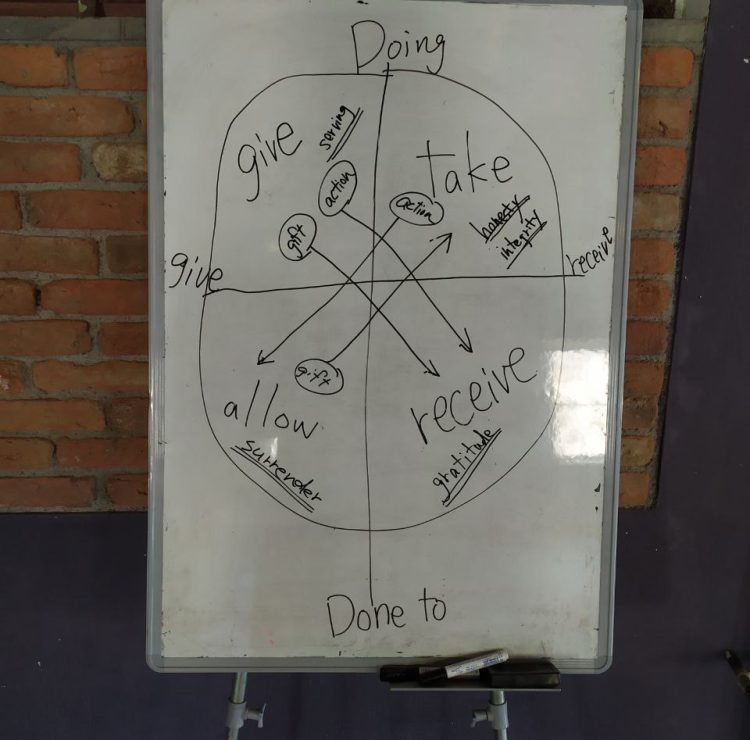 Doing
give
serving
action
gift
take
action
honesty
integrity
give
receive
gift
allow
surrender
receive
gratitude
Done to